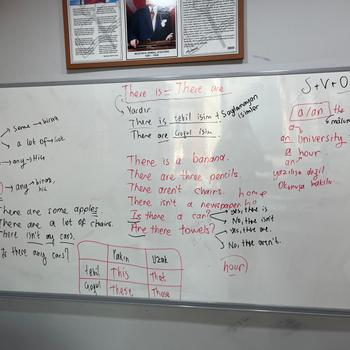 There is - There are
Vardır.
There is tekil isim + Sayılamayan isimler
There are Çoğul isim
S+V+O
a/an the
a
an University
a hour
an
yazılışa değil
Okunuşa bakılır.
some → biraz
a lot of →
any → Hiç
any → biraz, hiç
There is a banana.
There are three pencils.
There aren't chairs. home
There isn't a newspaper
Is there a car? → Yes, there is
No, there isn't
Are there towels? → Yes, there are.
No, there aren't.
There are some apples.
There are a lot of chairs.
There isn't any cars.
Is these any cars?
Yakın Uzak
tekil This That
Çoğul These Those
hour